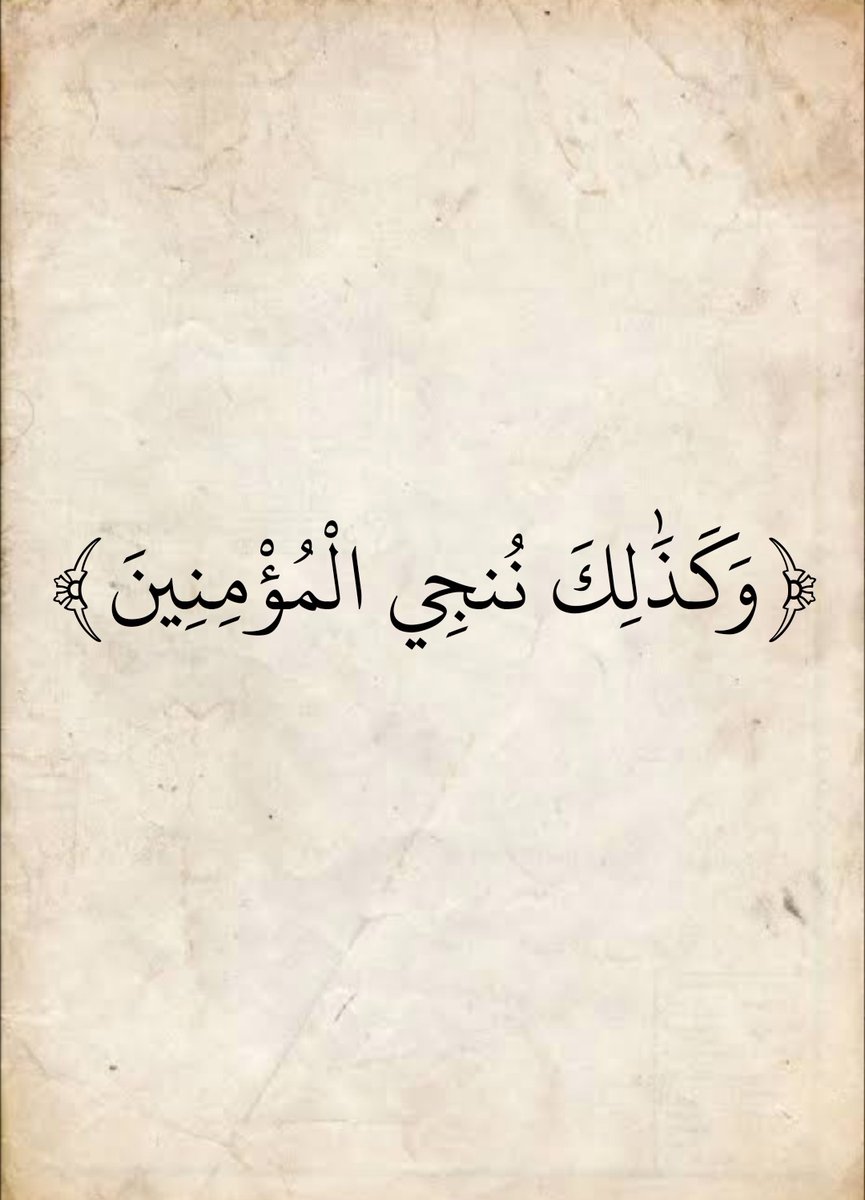 ﴿ وَكَذَٰلِكَ نُنجِي الْمُؤْمِنِينَ ﴾